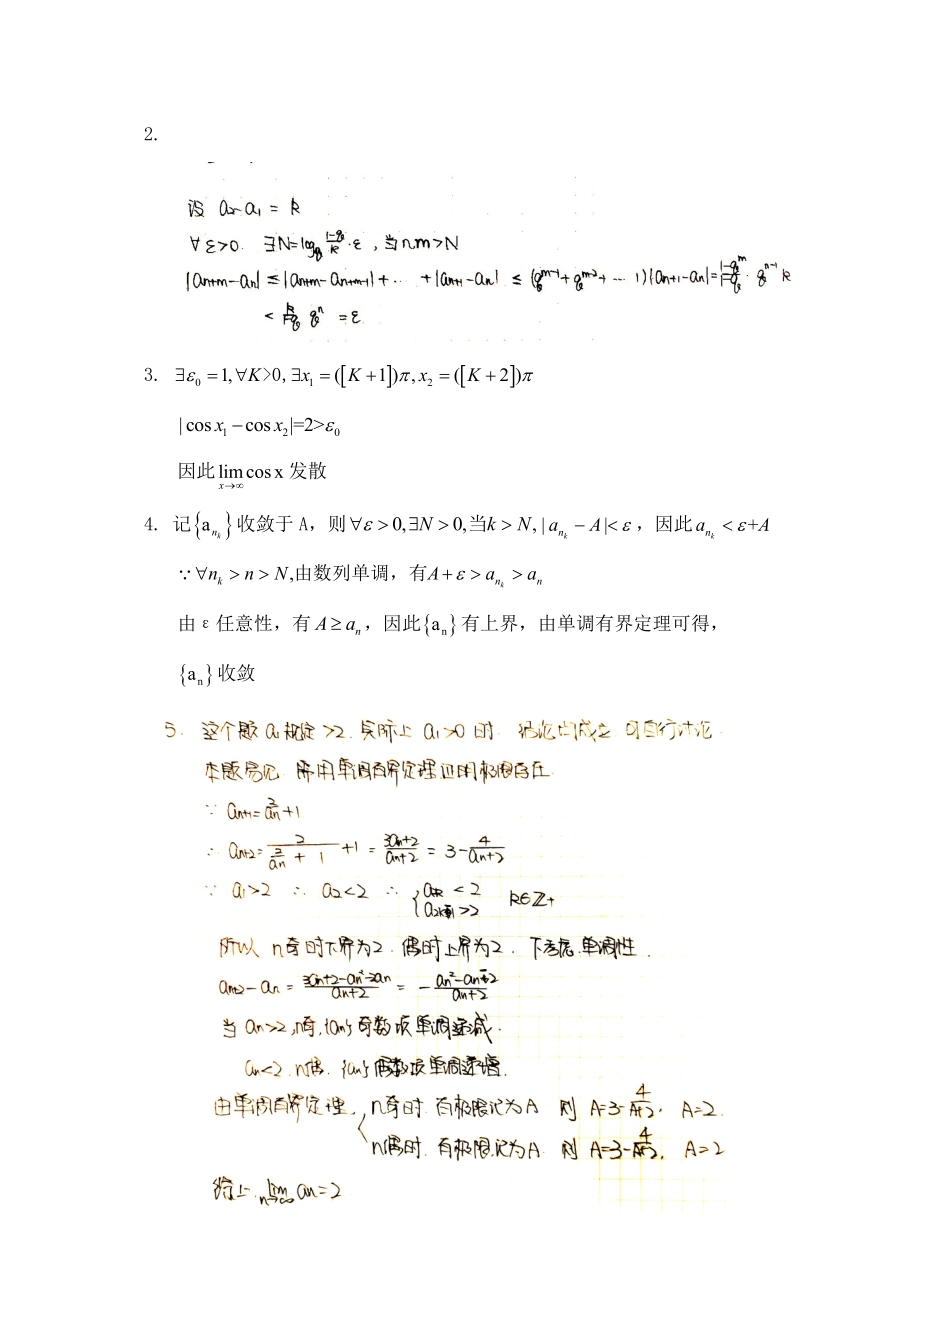 2.
设 a₂-a₁ = k
∀ε>0. ∃N=log_q (1-q)/k·ε , 当n,m>N
|a_{n+m}-a_n| ≤ |a_{n+m}-a_{n+m-1}|+… +|a_{n+1}-a_n| ≤ (q^{m-1}+q^{m-2}+ … 1)|a_{n+1}-a_n|= (1-q^m)/(1-q) · q^{n-1} k
< k/(1-q) q^n =ε
3. ∃ε₀ =1,∀K>0,∃x₁ =([K+1])π,x₂ =([K+2])π
|cos x₁ − cos x₂|=2>ε₀
因此 lim_{x→∞} cos x 发散
4. 记{a_{n_k}}收敛于 A，则∀ε>0,∃N>0,当k>N,|a_{n_k} − A|<ε，因此a_{n_k} <ε+A
∵∀n_k >n>N,由数列单调，有A+ε>a_{n_k} >a_n
由ε任意性，有 A≥a_n，因此{a_n}有上界，由单调有界定理可得，
{a_n}收敛
5. 这个题 a₁ 规定 >2. 实际上 a₁>0 时. 结论均成立 可自行讨论.
本题易记 需用单调有界定理证明极限存在
∵ a_{n+1}= 2/a_n +1
∴ a_{n+2}= 2/(2/a_n + 1) +1 = (3a_n+2)/(a_n+2) = 3- 4/(a_n+2)
∵ a₁>2 ∴ a₂<2 ∴ { a_{2k} <2 a_{2k-1} >2 k∈Z₊
所以 n奇时下界为2. 偶时上界为2. 下考虑.单调性.
a_{n+2}-a_n = (3a_n+2-a_n²-2a_n)/(a_n+2) = - (a_n²-a_n-2)/(a_n+2)
当 a_n>2, n奇, {a_n} 奇数项 单调递减.
a_n<2. n偶. {a_n} 偶数项单调递增.
由单调有界定理, { n奇时. 有极限记为A 则 A=3- 4/(A+2), A=2.
n偶时. 有极限.记为A 则 A=3- 4/(A+2), A=2
综上. lim_{n→∞} a_n=2